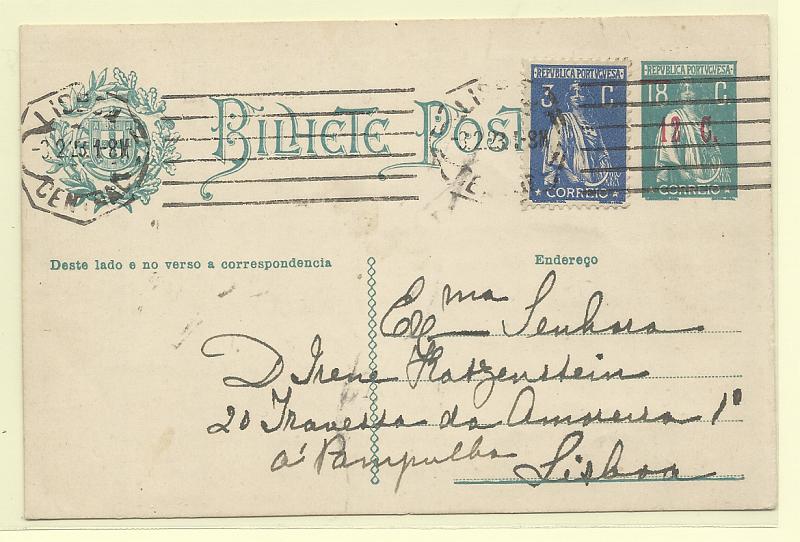 BILHETE POST
LISBOA
2.25 1-8M
CENTRAL
REPUBLICA PORTUGUESA
3 C.
CORREIO
REPUBLICA PORTUGUESA
18 C.
12 C.
CORREIO
Deste lado e no verso a correspondencia
Endereço
Exma Senhora
D Irene Katzenstein
20 Travessa da Amoreira 1º
á Pampulha
Lisboa